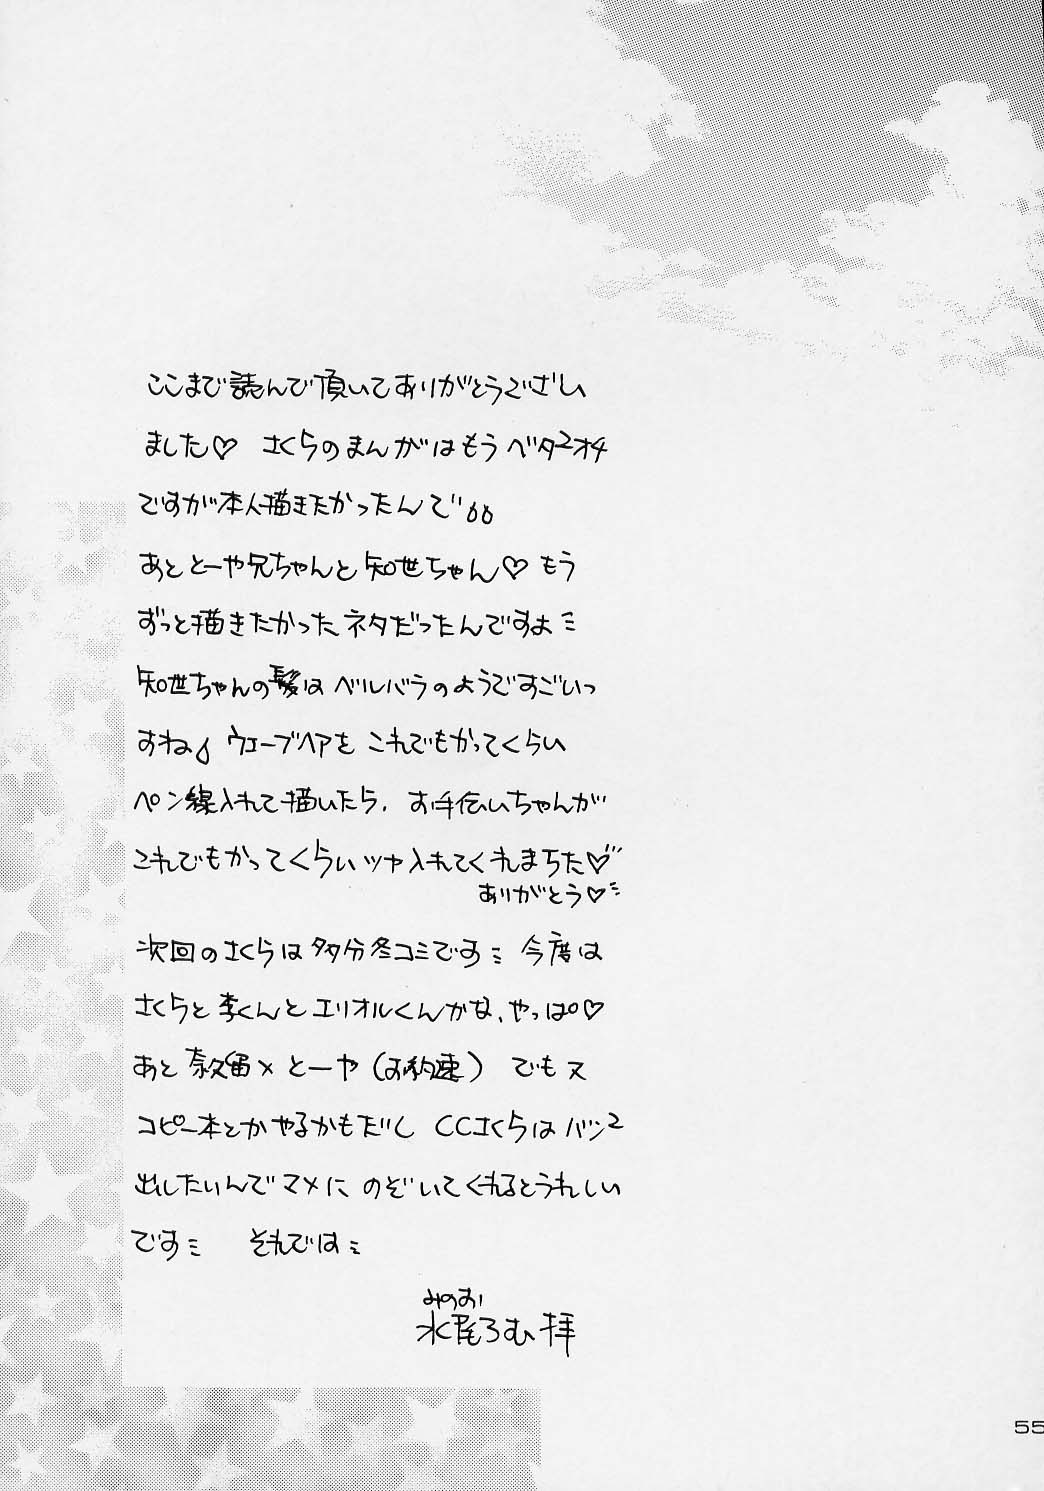 ここまで読んで頂いてありがとうござい
ました♡ さくらのまんがはもうベタ2オチ
ですが本人描きたかったんで
あととーや兄ちゃんと知世ちゃん♡もう
ずっと描きたかったネタだったんですよ
知世ちゃんの髪はベルバラのようですごいっ
すね ウェーブヘアをこれでもかってくらい
ペン線入れて描いたら、お手伝いちゃんが
これでもかってくらいツヤ入れてくれまちた♡
ありがとう♡
次回のさくらは多分冬コミです 今度は
さくらと李くんとエリオルくんかな、やっぱ♡
あと奈久留×とーや(お約束) でも又
コピー本とかやるかもだし CCさくらはバン2
出したいんでマメにのぞいてくれるとうれしい
です それでは
みのお
水尾ろむ拝
55